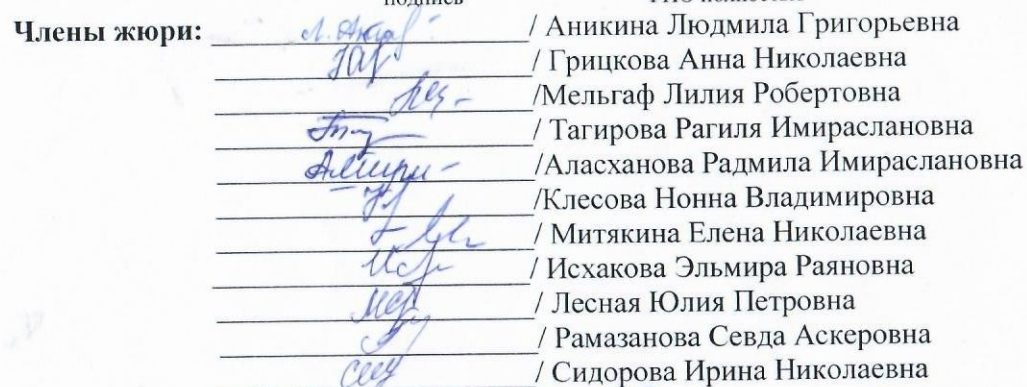 подпись
Члены жюри: / Аникина Людмила Григорьевна
/ Грицкова Анна Николаевна
/Мельгаф Лилия Робертовна
/ Тагирова Рагиля Имираслановна
/Аласханова Радмила Имираслановна
/Клесова Нонна Владимировна
/ Митякина Елена Николаевна
/ Исхакова Эльмира Раяновна
/ Лесная Юлия Петровна
/ Рамазанова Севда Аскеровна
/ Сидорова Ирина Николаевна